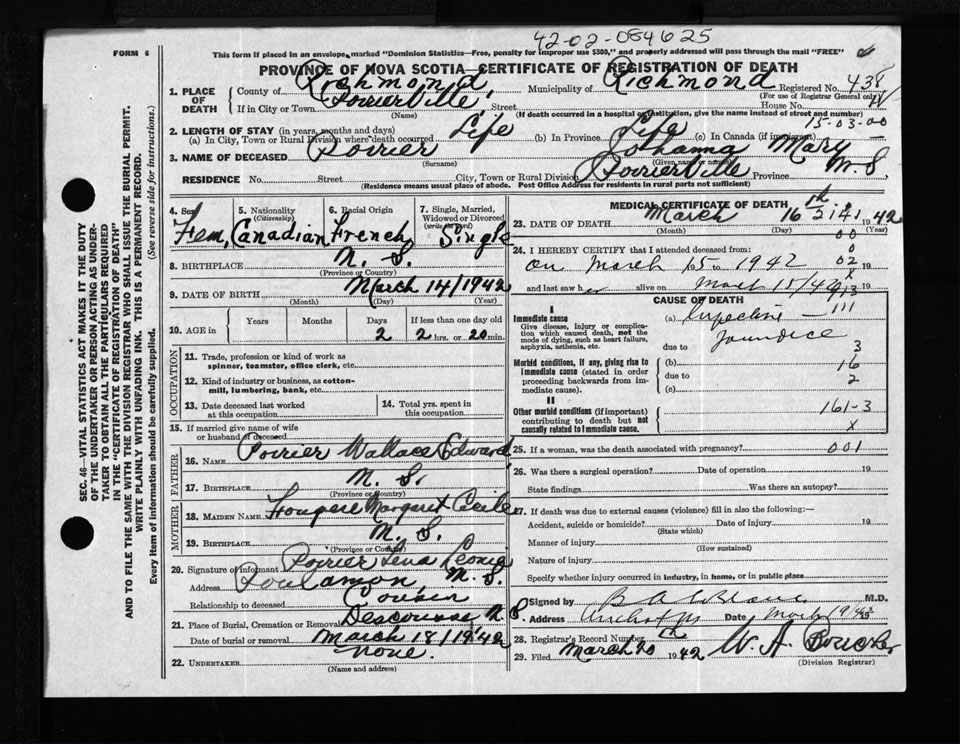 42-02-084625
FORM 6
This form if placed in an envelope, marked "Dominion Statistics—Free, penalty for improper use $300," and properly addressed will pass through the mail "FREE"
PROVINCE OF NOVA SCOTIA—CERTIFICATE OF REGISTRATION OF DEATH
1. PLACE OF DEATH County of Richmond Municipality of Richmond Registered No. 438
(For use of Registrar General only)
If in City or Town Poirierville Street House No.
(Name) (If death occurred in a hospital or institution, give the name instead of street and number)
15-03-00
2. LENGTH OF STAY (in years, months and days)
(a) In City, Town or Rural Division where death occurred Life (b) In Province Life (c) In Canada (if immigrant)
3. NAME OF DECEASED Poirier Johanna Mary
(Surname) (Given name or names)
RESIDENCE No. Street City, Town or Rural Division Poirierville Province N. S
(Residence means usual place of abode. Post Office Address for residents in rural parts not sufficient)
SEC. 46—VITAL STATISTICS ACT MAKES IT THE DUTY
OF THE UNDERTAKER OR PERSON ACTING AS UNDER-
TAKER TO OBTAIN ALL THE PARTICULARS REQUIRED
IN THE "CERTIFICATE OF REGISTRATION OF DEATH"
AND TO FILE THE SAME WITH THE DIVISION REGISTRAR WHO SHALL ISSUE THE BURIAL PERMIT.
WRITE PLAINLY WITH UNFADING INK. THIS IS A PERMANENT RECORD.
Every item of information should be carefully supplied. (See reverse side for instructions.)
4. Sex 5. Nationality (Citizenship) 6. Racial Origin 7. Single, Married, Widowed or Divorced (write the word)
Fem, Canadian French Single
8. BIRTHPLACE N. S.
(Province or Country)
9. DATE OF BIRTH March 14/1942
(Month) (Day) (Year)
10. AGE in Years Months Days If less than one day old
2 2 hrs. or 20 min.
OCCUPATION
11. Trade, profession or kind of work as
spinner, teamster, office clerk, etc.
12. Kind of industry or business, as cotton-
mill, lumbering, bank, etc.
13. Date deceased last worked
at this occupation
14. Total yrs. spent in
this occupation
15. If married give name of wife
or husband of deceased
FATHER
16. NAME Poirier Wallace Edward
17. BIRTHPLACE N. S.
(Province or Country)
MOTHER
18. MAIDEN NAME Fougere Margaret Cecile
19. BIRTHPLACE N. S.
(Province or Country)
20. Signature of informant Poirier Lena
Address N. S.
Relationship to deceased Cousin
21. Place of Burial, Cremation or Removal Descousse N S
Date of burial or removal March 18/1942
22. UNDERTAKER none.
(Name and address)
MEDICAL CERTIFICATE OF DEATH
23. DATE OF DEATH March 16th 1942
3141
(Month) (Day) (Year)
00
24. I HEREBY CERTIFY that I attended deceased from:
on March 15 to 1942 02 19
x
and last saw her alive on March 15/42 19
CAUSE OF DEATH
I
Immediate cause
Give disease, injury or complica-
tion which caused death, not the
mode of dying, such as heart failure,
asphyxia, asthenia, etc.
(a)
111
due to Jaundice
3
Morbid conditions, if any, giving rise to
immediate cause (stated in order
proceeding backwards from im-
mediate cause).
(b) 16
due to 2
(c)
II
Other morbid conditions (if important)
contributing to death but not
causally related to immediate cause.
161-3
x
25. If a woman, was the death associated with pregnancy? 001
26. Was there a surgical operation? Date of operation 19
State findings Was there an autopsy?
27. If death was due to external causes (violence) fill in also the following:—
Accident, suicide or homicide? Date of injury 19
(State which)
Manner of injury
(How sustained)
Nature of injury
Specify whether injury occurred in industry, in home, or in public place
Signed by B A LeBlanc M.D.
Address Arichat NS Date
28. Registrar's Record Number
29. Filed March 20th 1942 W. A.
(Division Registrar)